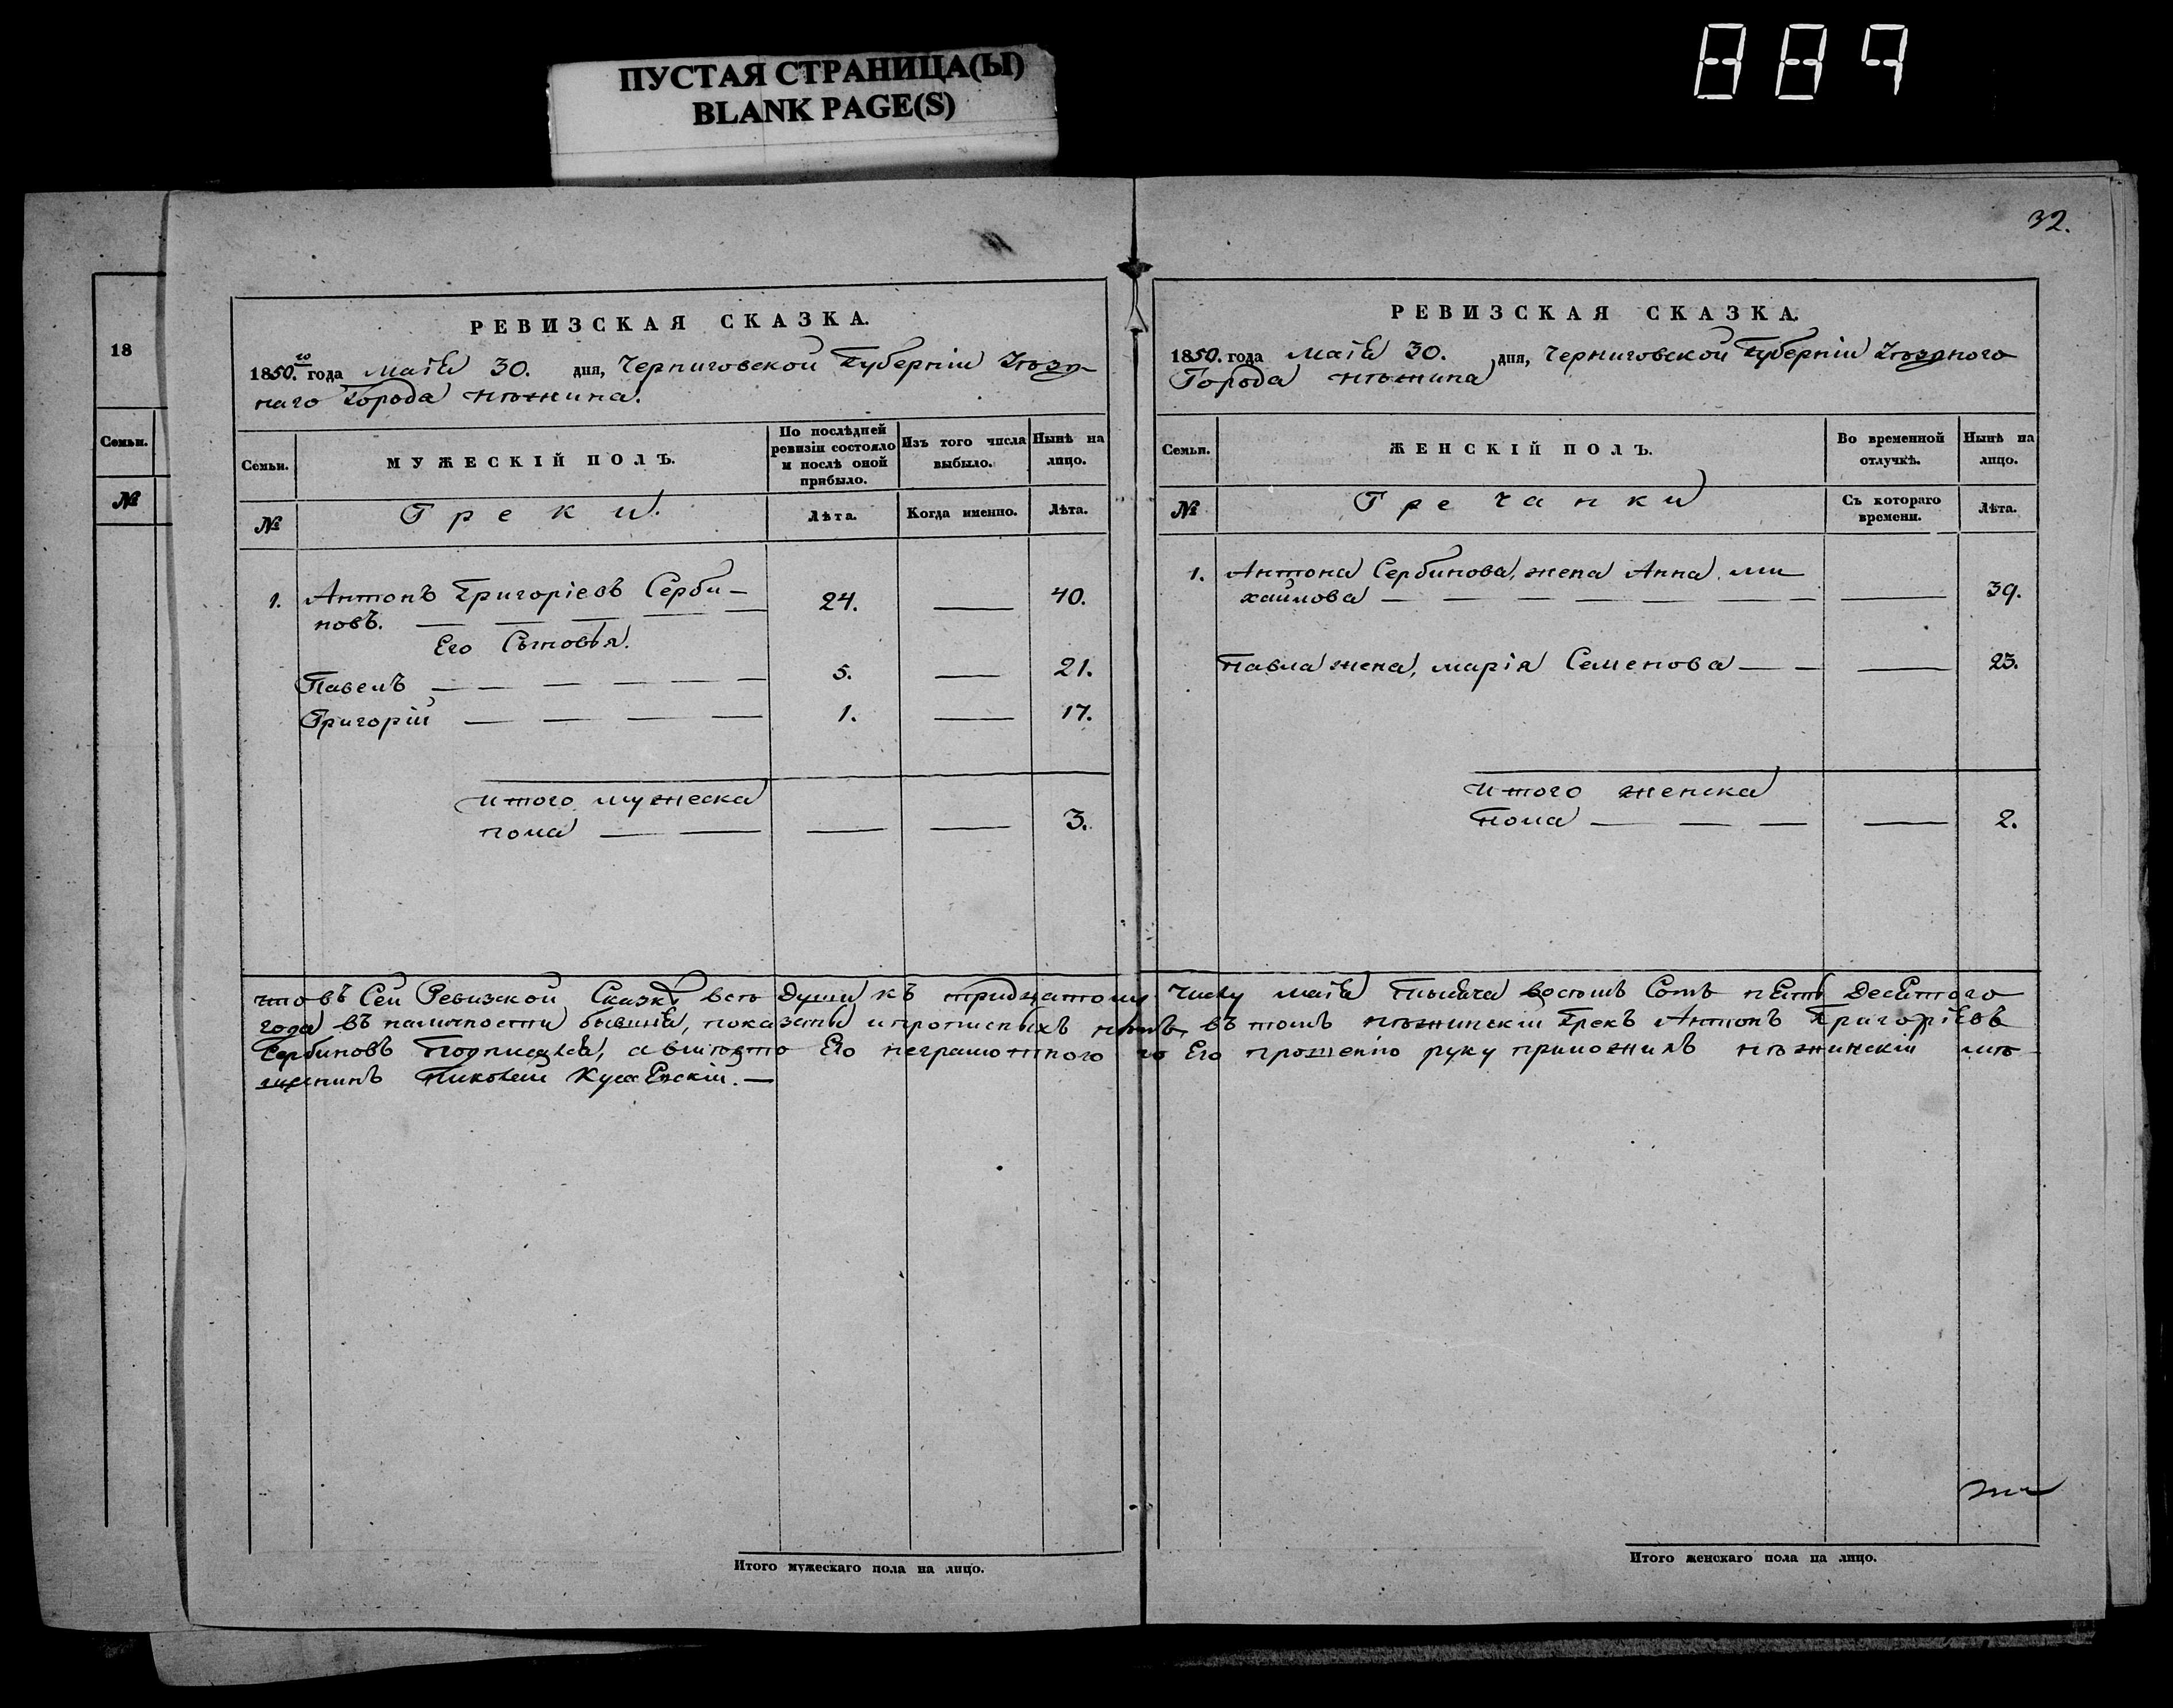 ПУСТАЯ СТРАНИЦА(Ы)
BLANK PAGE(S)
884
32.
18
Семьи.
№
РЕВИЗСКАЯ СКАЗКА.
1850.го года Маія 30. дня, Черниговской Губерніи Уѣзд-
наго Города Нѣжина.
Семьи.
МУЖЕСКІЙ ПОЛЪ.
По послѣдней ревизіи состояло и послѣ оной прибыло.
Изъ того числа выбыло.
Нынѣ на лицо.
№
Греки.
Лѣта.
Когда именно.
Лѣта.
1. Антонъ Григоріевъ Серби- 24. — 40.
новъ.
Его Сыновья.
Павелъ 5. — 21.
Григорій 1. — 17.
Итого мужеска
пола — — 3.
РЕВИЗСКАЯ СКАЗКА.
1850. года Маія 30. дня, Черниговской Губерніи Уѣздного
Города Нѣжина
Семьи.
ЖЕНСКІЙ ПОЛЪ.
Во временной отлучкѣ.
Нынѣ на лицо.
№
Гречанки
Съ котораго времени.
Лѣта.
1. Антона Сербинова, жена Анна, Ми
хайлова — 39.
Павла жена, Марія Семенова — 23.
Итого женска
Пола — 2.
что въ Сей Ревизской Сказкѣ всѣ Души къ тридцатому Числу Маія Тысяча восемь Сотъ пять Десятого
года въ наличности бывшія, показаны и прописныхъ нѣтъ, въ томъ Нѣжинскій Грекъ Антонъ Григоріевъ
Сербиновъ Подписался, а вмѣсто Его неграмотного по Его прошенію руку приложилъ Нѣжинскій мѣ
щанинъ Николай
Итого мужескаго пола на лицо.
Итого женскаго пола на лицо.